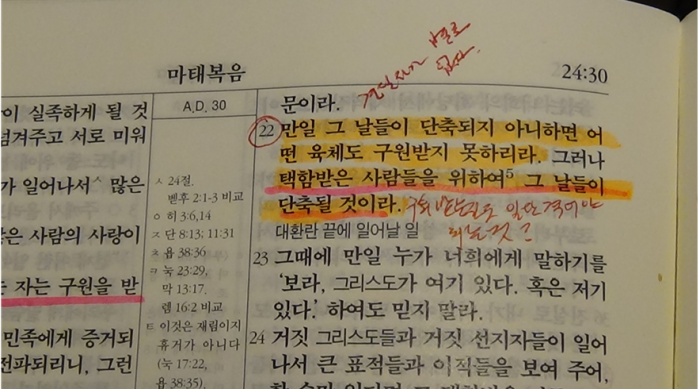 마태복음
24:30
이 실족하게 될 것
넘겨주고 서로 미워
가 일어나서ㅅ 많은
은 사람의 사랑이
는 자는 구원을 받
민족에게 증거되
전파되리니, 그런
A.D. 30
ㅅ 24절.
벧후 2:1-3 비교
ㅇ 히 3:6,14
ㅈ 단 8:13; 11:31
ㅊ 욥 38:36
ㅋ 눅 23:29,
막 13:17.
렘 16:2 비교
ㅌ 이것은 재림이지
휴거가 아니다
(눅 17:22,
욥 38:35).
문이라.
22 만일 그 날들이 단축되지 아니하면 어
떤 육체도 구원받지 못하리라. 그러나
택함받은 사람들을 위하여5 그 날들이
단축될 것이라.
대환란 끝에 일어날 일
23 그때에 만일 누가 너희에게 말하기를
‘보라, 그리스도가 여기 있다. 혹은 저기
있다.’ 하여도 믿지 말라.
24 거짓 그리스도들과 거짓 선지자들이 일어
나서 큰 표적들과 이적들을 보여 주어,